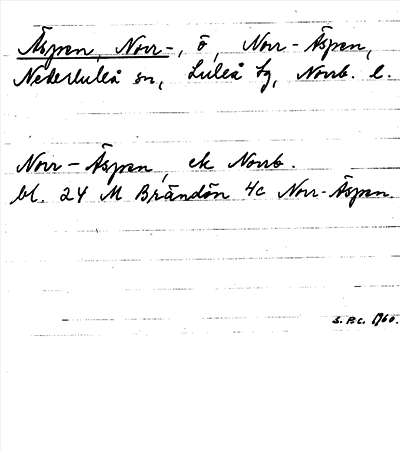 Äspen, Norr-, ö, Norr-Äspen,
Nederluleå sn, Luleå tg, Norrb. l.
Norr-Äspen, ek Norrb.
bl. 24 M Brändön 4c Norr-Äspen.
S.B.C. 1960.